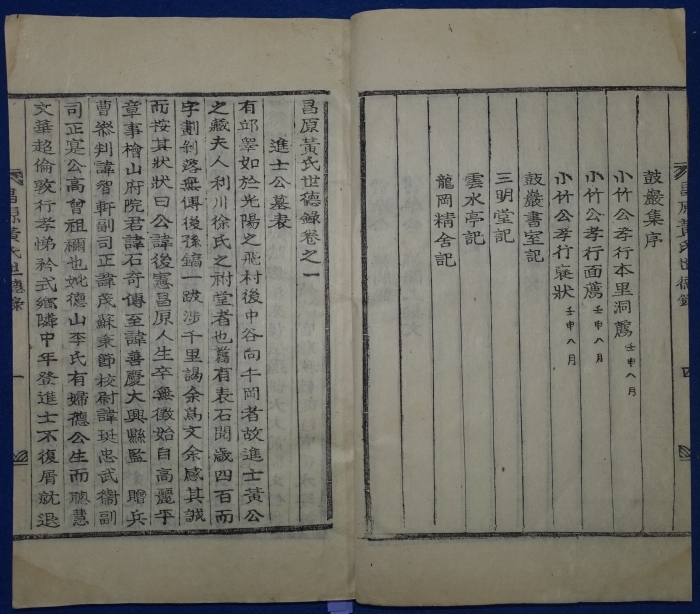 鼓巖集序
小竹公孝行本里洞薦 壬申八月
小竹公孝行面薦 壬申八月
小竹公孝行裒狀 壬申八月
鼓巖書室記
三明堂記
雲水亭記
龍岡精舍記
昌原黃氏世德錄 四
昌原黃氏世德錄卷之一
進士公墓表
有邱睪如於光陽之飛村後中谷向千岡者故進士黃公
之藏夫人利川徐氏之祔堂者也舊有表石閱歲四百而
字劃剝落無傳後孫鎬一跋涉千里謁余爲文余感其誠
而按其狀狀曰公諱後憲昌原人生卒無徵始自高麗平
章事檜山府院君諱石奇傳至諱善慶大興縣監 贈兵
曹參判諱智軒副司正諱茂蘇秉節校尉諱珽忠武衛副
司正寔公高曾祖禰也妣德山李氏有婦德公生而聰慧
文華超倫敦行孝悌矜式鄕隣中年登進士不復屑就退
昌原黃氏世德錄 一